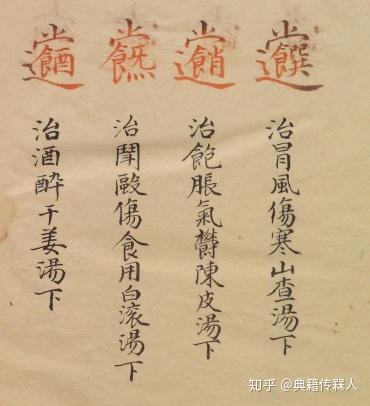 治冒風傷寒山查湯下
治飽脹氣欝陳皮湯下
治鬪毆傷食用白滚湯下
治酒醉干姜湯下
知乎 @典籍传槑人